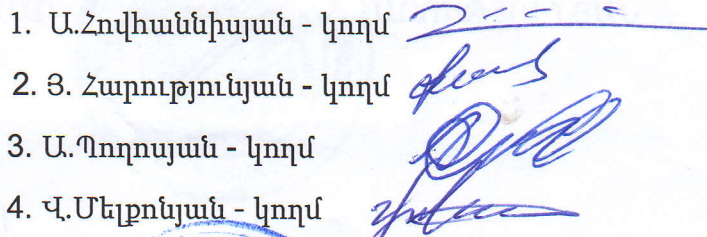 1. Ա.Հովհաննիսյան - կողմ
2. Յ. Հարությունյան - կողմ
3. Ա.Պողոսյան - կողմ
4. Վ.Մելքոնյան - կողմ